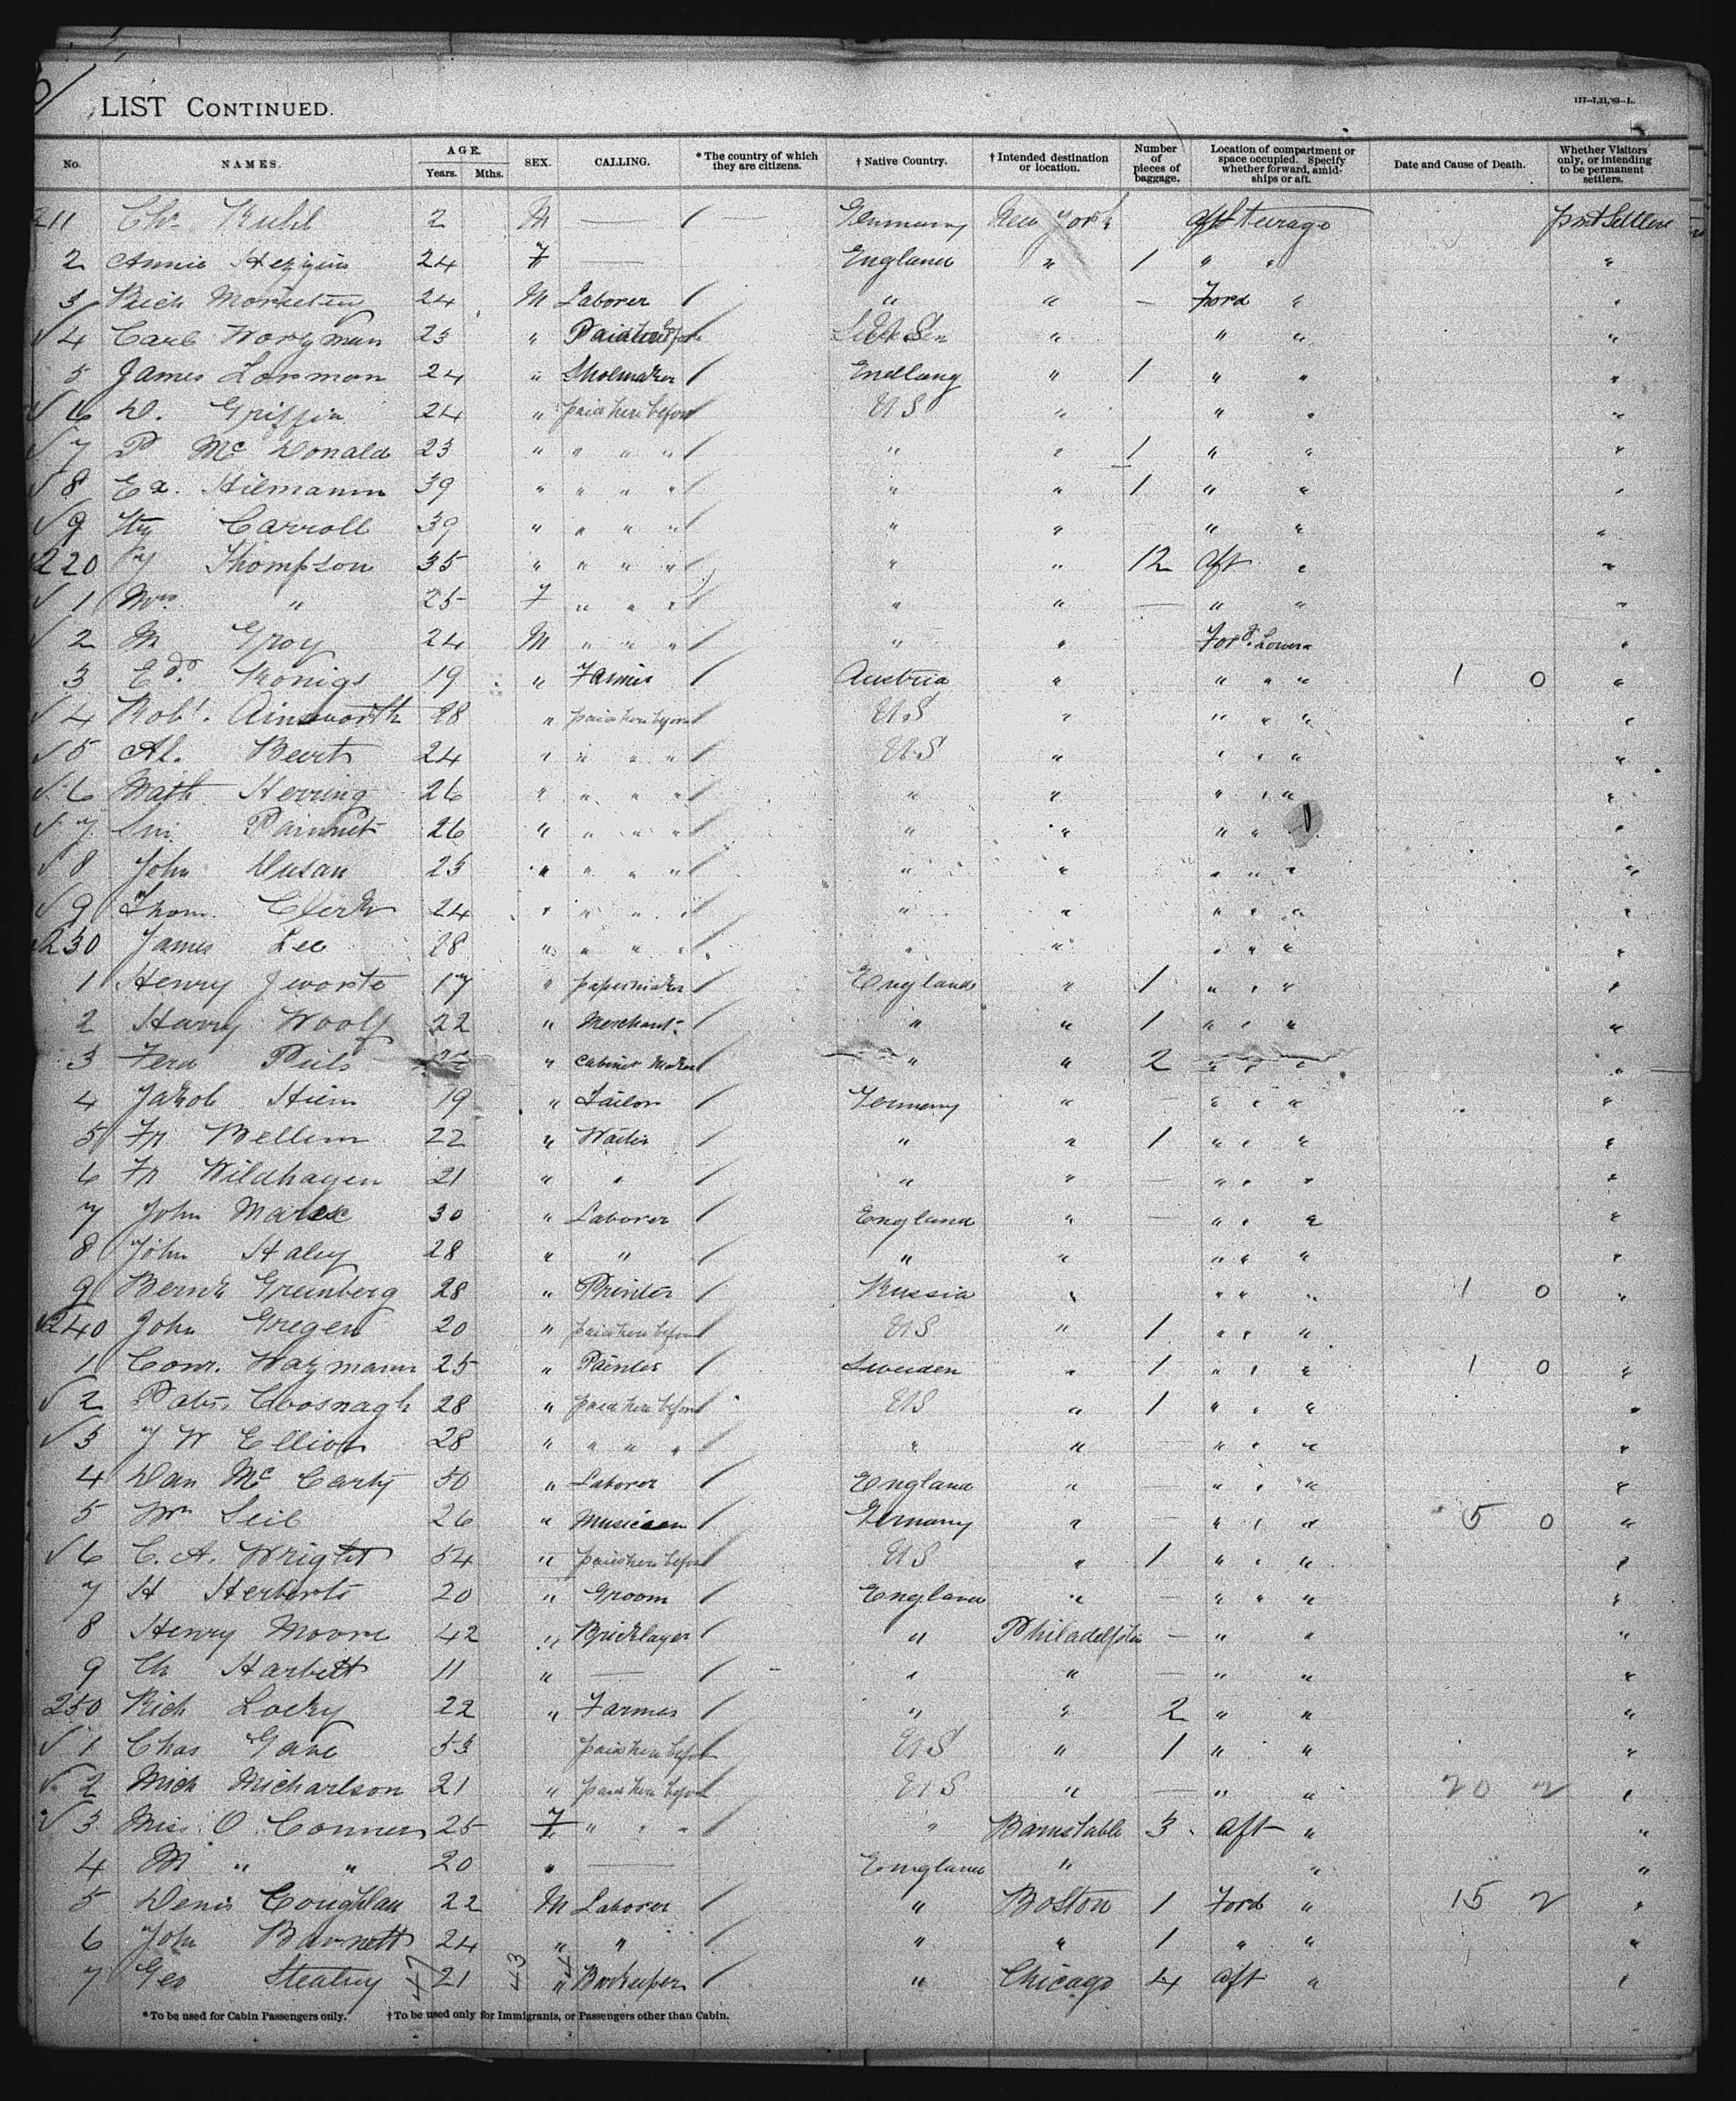 LIST CONTINUED.
No. NAMES. AGE. Years. Mths. SEX. CALLING. *The country of which they are citizens. †Native Country. †Intended destination or location. Number of pieces of baggage. Location of compartment or space occupied. Specify whether forward, amidships or aft. Date and Cause of Death. Whether Visitors only, or intending to be permanent settlers.
211 Chr. Kuhl 2 M — / — Germany New York Aft Steerage
2 Annie Higgins 24 F — England " 1 " " "
3 Rich 24 M Laborer / " " — Ford " "
4 Carl 23 " " " " "
5 James Lorman 24 " / " 1 " " "
6 D. Griffin 24 " paid here before / US " " " "
7 P McDonald 23 " " " " / " " 1 " " "
8 Ed. Hilmann 39 " " " " / " " 1 " " "
9 Hy Carroll 39 " " " " / " " " " "
220 Thompson 35 " " " " / " " 12 Aft " "
1 Mrs " 25 F " " " / " " — " " "
2 M Groy 24 M " " " / " " Ford. Lower " "
3 Ed. Konigs 19 " / Austria " " " " 1 0 "
4 Robt. Ainsworth 28 " paid here before / U.S " " " " "
5 Al. 24 " " " " / US " " " " "
6 Math Herring 26 " " " " / " " " " " "
7 26 " " " " / " " " " "
8 John Dusan 23 " " " " / " " " " " "
9 Thom. Clerk 24 " " " " / " " " " " "
230 James Lee 28 " " " " / " " " " " "
1 Henry 17 " papermaker / England " 1 " " " "
2 Harry Woolf 22 " Merchant / " " 1 " " " "
3 Ferd " Cabinet Maker / " " 2 " " " "
4 Jakob 19 " Tailor / Germany " — " " " "
5 Fr Bellem 22 " Waiter / " " 1 " " " "
6 Fr Wildhagen 21 " " / " " — " " " "
7 John 30 " Laborer / England " — " " " "
8 John Haley 28 " " / " " " " " "
9 Bernh Greenberg 28 " Printer / Russia " " " " 1 0 "
240 John Gregen 20 " paid here before / US " 1 " " "
1 Conr. Wazmann 25 " Painter / Sweden " 1 " " " 1 0 "
2 28 " paid here before / US " 1 " " " "
3 J W Elliot 28 " " " " / " " — " " " "
4 Dan McCarty 50 " Laborer / England " — " " " "
5 Wm Seib 26 " Musician / Germany " — " " " 5 0 "
6 C. A. Wright 54 " paid here before / US " 1 " " " "
7 H Herberts 20 " Groom / England " — " " " "
8 Henry Moore 42 " Bricklayer / " Philadelphia — " " "
9 Ch Harbett 11 " — / " " — " " "
250 Rich Locky 22 " Farmer / " " 2 " " "
1 Chas Gave 53 paid here before US " 1 " " "
2 Mich Micharlson 21 " paid here before US " — " " 20 2 "
3 Miss O Conner 25 F " " " / " Barnstable 3 Aft " "
4 M " " 20 " — England " " "
5 Denis Coughlan 22 M Laborer / " Boston 1 Ford " 15 2 "
6 John Barnett 24 " " / " " 1 " " "
7 Geo 21 " / " Chicago 4 Aft " "
47 43 4
*To be used for Cabin Passengers only. †To be used only for Immigrants, or Passengers other than Cabin.